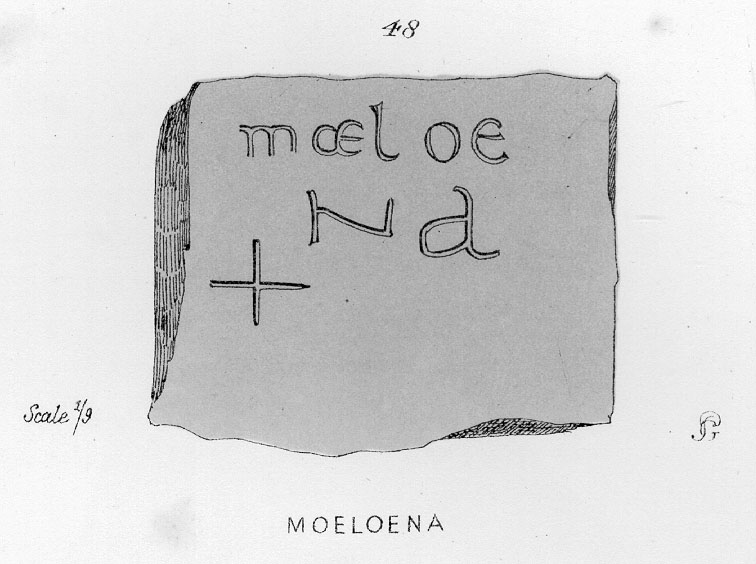 48
mœl oe
Na
Scale 1/9
MOELOENA